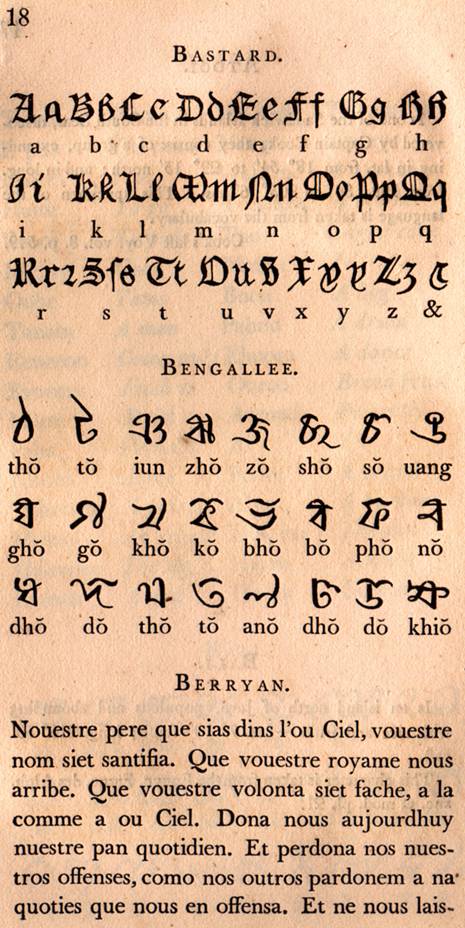 18
BASTARD.
Aa Bb Cc Dd Ee Ff Gg Hh
a b c d e f g h
Ii Kk Ll Mm Nn Oo Pp Qq
i k l m n o p q
Rr2 Sſs Tt Uuv Xxy Zz &
r s t u v x y z &
BENGALLEE.
ঠ ট ঞ ঝ জ ছ চ ঙ
thŏ tŏ iun zhŏ zŏ shŏ sŏ uang
ঘ গ খ ক ভ ব ফ ন
ghŏ gŏ khŏ kŏ bhŏ bŏ phŏ nŏ
ধ দ থ ত ণ ঢ ড ক্ষ
dhŏ dŏ thŏ tŏ anŏ dhŏ dŏ khiŏ
BERRYAN.
Nouestre pere que sias dins l'ou Ciel, vouestre
nom siet santifia. Que vouestre royame nous
arribe. Que vouestre volonta siet fache, a la
comme a ou Ciel. Dona nous aujourdhuy
nuestre pan quotidien. Et perdona nos nues-
tros offenses, como nos outros pardonem a na
quoties que nous en offensa. Et ne nous lais-